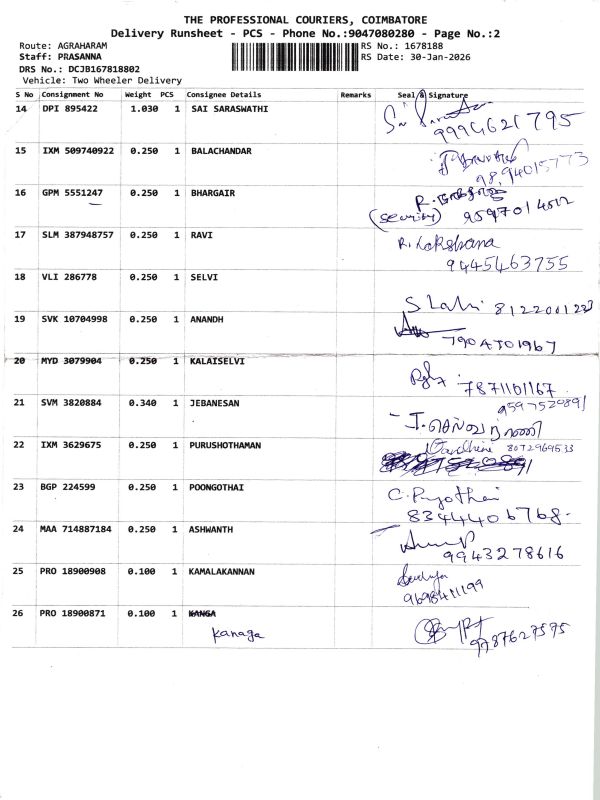 THE PROFESSIONAL COURIERS, COIMBATORE
Delivery Runsheet - PCS - Phone No.:9047080280 - Page No.:2
Route: AGRAHARAM RS No.: 1678188
Staff: PRASANNA RS Date: 30-Jan-2026
DRS No.: DCJB167818802
Vehicle: Two Wheeler Delivery
S No Consignment No Weight PCS Consignee Details Remarks Seal & Signature
14 DPI 895422 1.030 1 SAI SARASWATHI
9994621795
15 IXM 509740922 0.250 1 BALACHANDAR
9894015773
16 GPM 5551247 0.250 1 BHARGAIR
(Security) 9597014512
17 SLM 387948757 0.250 1 RAVI R. Lakshana
9445463755
18 VLI 286778 0.250 1 SELVI
8122001223
19 SVK 10704998 0.250 1 ANANDH
7904301967
20 MYD 3079904 0.250 1 KALAISELVI
7871101167
21 SVM 3820884 0.340 1 JEBANESAN 9597520891
22 IXM 3629675 0.250 1 PURUSHOTHAMAN 8072969533
23 BGP 224599 0.250 1 POONGOTHAI
8344406768
24 MAA 714887184 0.250 1 ASHWANTH
9943278616
25 PRO 18900908 0.100 1 KAMALAKANNAN
9698411199
26 PRO 18900871 0.100 1 KANGA
Kanaga 9787627575